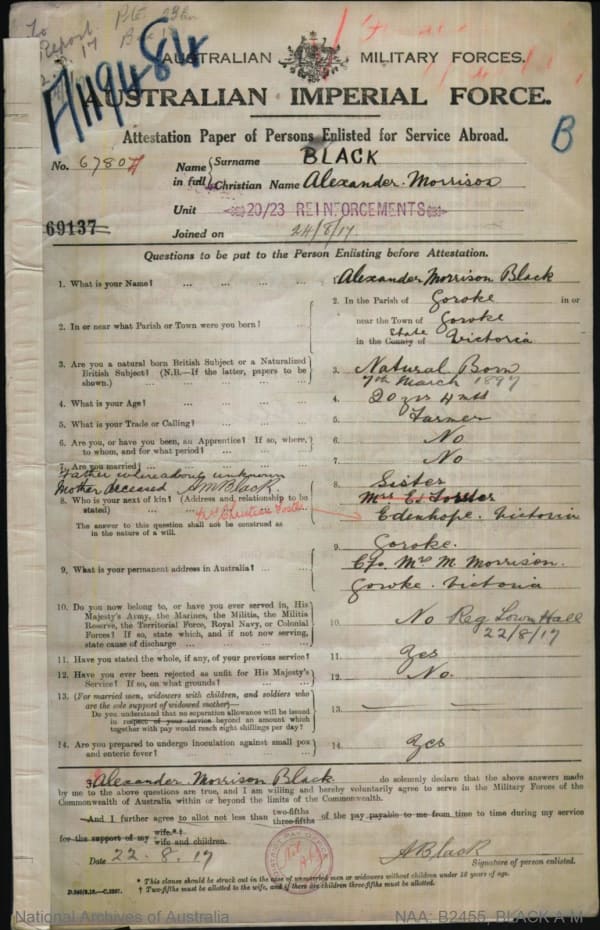 To
Report
17
A119484
AUSTRALIAN MILITARY FORCES.
AUSTRALIAN IMPERIAL FORCE.
Attestation Paper of Persons Enlisted for Service Abroad.
B
No. 6780A
Name in full { Surname BLACK
Christian Name Alexander Morrison
Unit 20/23 REINFORCEMENTS
69137
Joined on 24/8/17
Questions to be put to the Person Enlisting before Attestation.
1. What is your Name? ... ... ... ... 1. Alexander Morrison Black
2. In or near what Parish or Town were you born? ... 2. In the Parish of Goroke in or
near the Town of Goroke
State
in the County of Victoria
3. Are you a natural born British Subject or a Naturalized
British Subject? (N.B.—If the latter, papers to be
shown.) ... ... ... ... 3. Natural Born
7th March 1897
4. What is your Age? ... ... ... ... 4. 20 yrs 4 mts
5. What is your Trade or Calling? ... ... ... 5. Farmer
6. Are you, or have you been, an Apprentice? If so, where,
to whom, and for what period? ... ... ... 6. No
7. Are you married? ... ... ... ... 7. No
Father whereabouts unknown
Mother deceased AMBlack.
8. Who is your next of kin? (Address and relationship to be
stated) ... Mrs Christina Foster
8. Sister
Mrs C. Foster
Edenhope. Victoria
The answer to this question shall not be construed as
in the nature of a will.
9. What is your permanent address in Australia? ... 9. Goroke.
C/o Mrs M Morrison.
Goroke. Victoria
10. Do you now belong to, or have you ever served in, His
Majesty's Army, the Marines, the Militia, the Militia
Reserve, the Territorial Force, Royal Navy, or Colonial
Forces? If so, state which, and if not now serving,
state cause of discharge ... ... ... 10. No Reg Town Hall
22/8/17
11. Have you stated the whole, if any, of your previous service? 11. Yes
12. Have you ever been rejected as unfit for His Majesty's
Service? If so, on what grounds? ... ... 12. No.
13. (For married men, widowers with children, and soldiers who
are the sole support of widowed mother)—
Do you understand that no separation allowance will be issued
in respect of your service beyond an amount which
together with pay would reach eight shillings per day? 13. — —
14. Are you prepared to undergo inoculation against small pox
and enteric fever? ... ... ... 14. Yes
I, Alexander Morrison Black do solemnly declare that the above answers made
by me to the above questions are true, and I am willing and hereby voluntarily agree to serve in the Military Forces of the
Commonwealth of Australia within or beyond the limits of the Commonwealth.
And I further agree to allot not less than two-fifths three-fifths of the pay payable to me from time to time during my service
for the support of my wife.*† wife and children.
Date 22.8.17
A Black
Signature of person enlisted.
* This clause should be struck out in the case of unmarried men or widowers without children under 18 years of age.
† Two-fifths must be allotted to the wife, and if there are children three-fifths must be allotted.
National Archives of Australia
NAA: B2455, BLACK A M